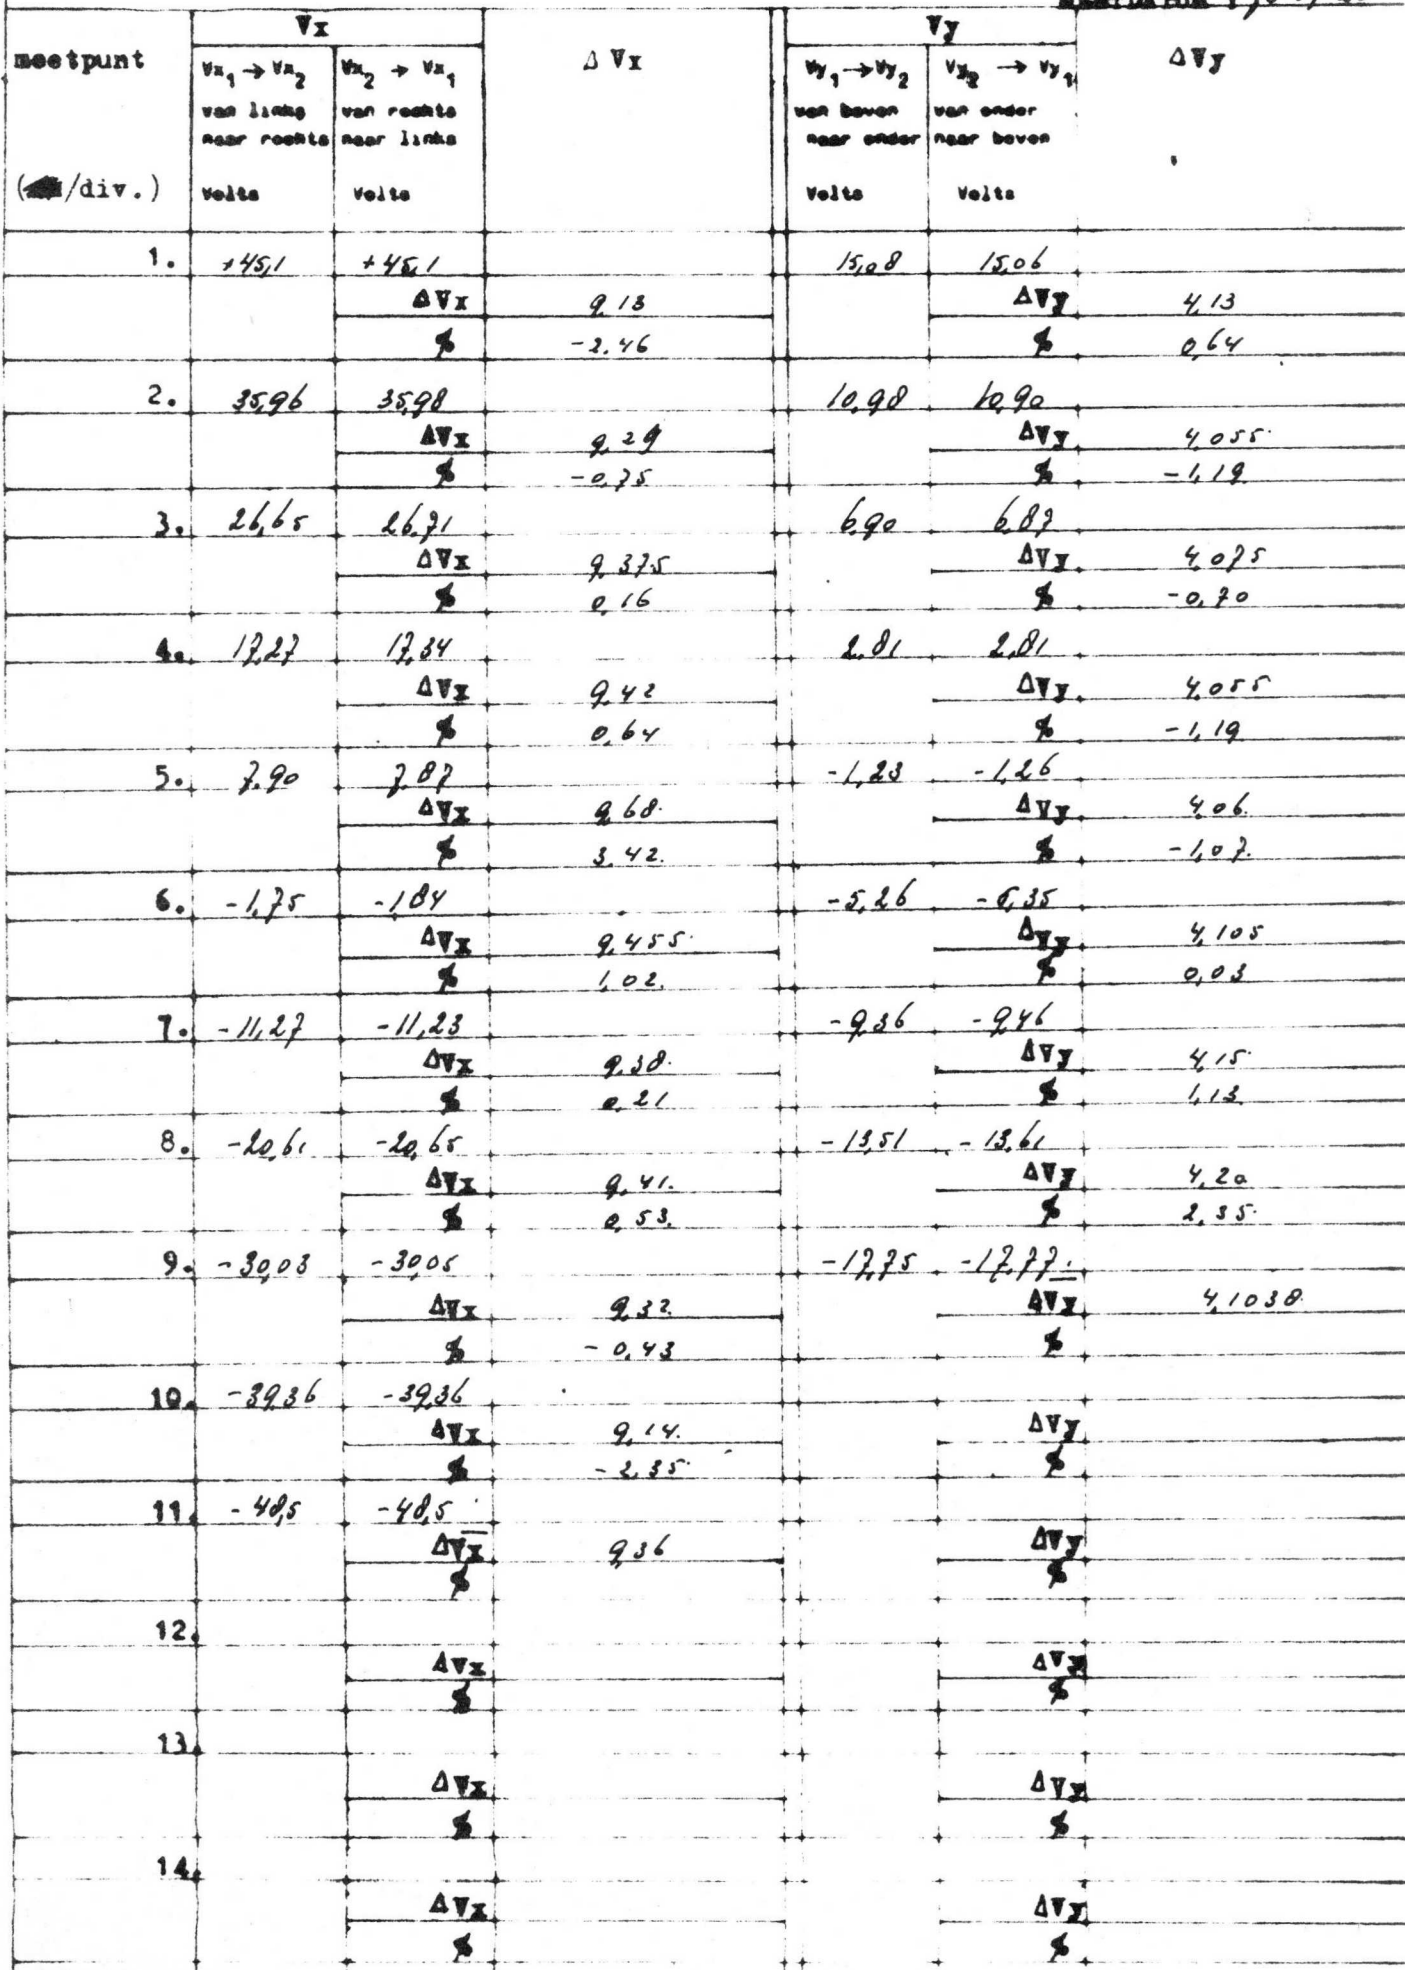 Vx Vy
meetpunt Vx1 → Vx2 Vx2 → Vx1 Δ Vx Vy1 → Vy2 Vy2 → Vy1 ΔVy
van links van rechts van boven van onder
naar rechts naar links naar onder naar boven
( /div.) Volts Volts Volts Volts
1. +45,1 +45,1 15,08 15,06
ΔVx 9,13 ΔVy 4,13
% -2,46 % 0,64
2. 35,96 35,98 10,98 10,90
ΔVx 9,29 ΔVy 4,055
% -0,75 % -1,19
3. 26,65 26,71 6,90 6,87
ΔVx 9,375 ΔVy 4,075
% 0,16 % -0,70
4. 17,27 17,34 2,81 2,81
ΔVx 9,42 ΔVy 4,055
% 0,64 % -1,19
5. 7,90 7,87 -1,23 -1,26
ΔVx 9,68 ΔVy 4,06
% 3,42 % -1,07
6. -1,75 -1,84 -5,26 -5,35
ΔVx 9,455 ΔVy 4,105
% 1,02 % 0,03
7. -11,27 -11,23 -9,36 -9,46
ΔVx 9,38 ΔVy 4,15
% 0,21 % 1,13
8. -20,61 -20,65 -13,51 -13,61
ΔVx 9,41 ΔVy 4,20
% 0,53 % 2,35
9. -30,03 -30,05 -17,75 -17,77
ΔVx 9,32 ΔVy 4,1038
% -0,43 %
10. -39,36 -39,36
ΔVx 9,14 ΔVy
% -2,35 %
11. -48,5 -48,5
ΔVx 9,36 ΔVy
% %
12.
ΔVx ΔVy
% %
13.
ΔVx ΔVy
% %
14.
ΔVx ΔVy
% %